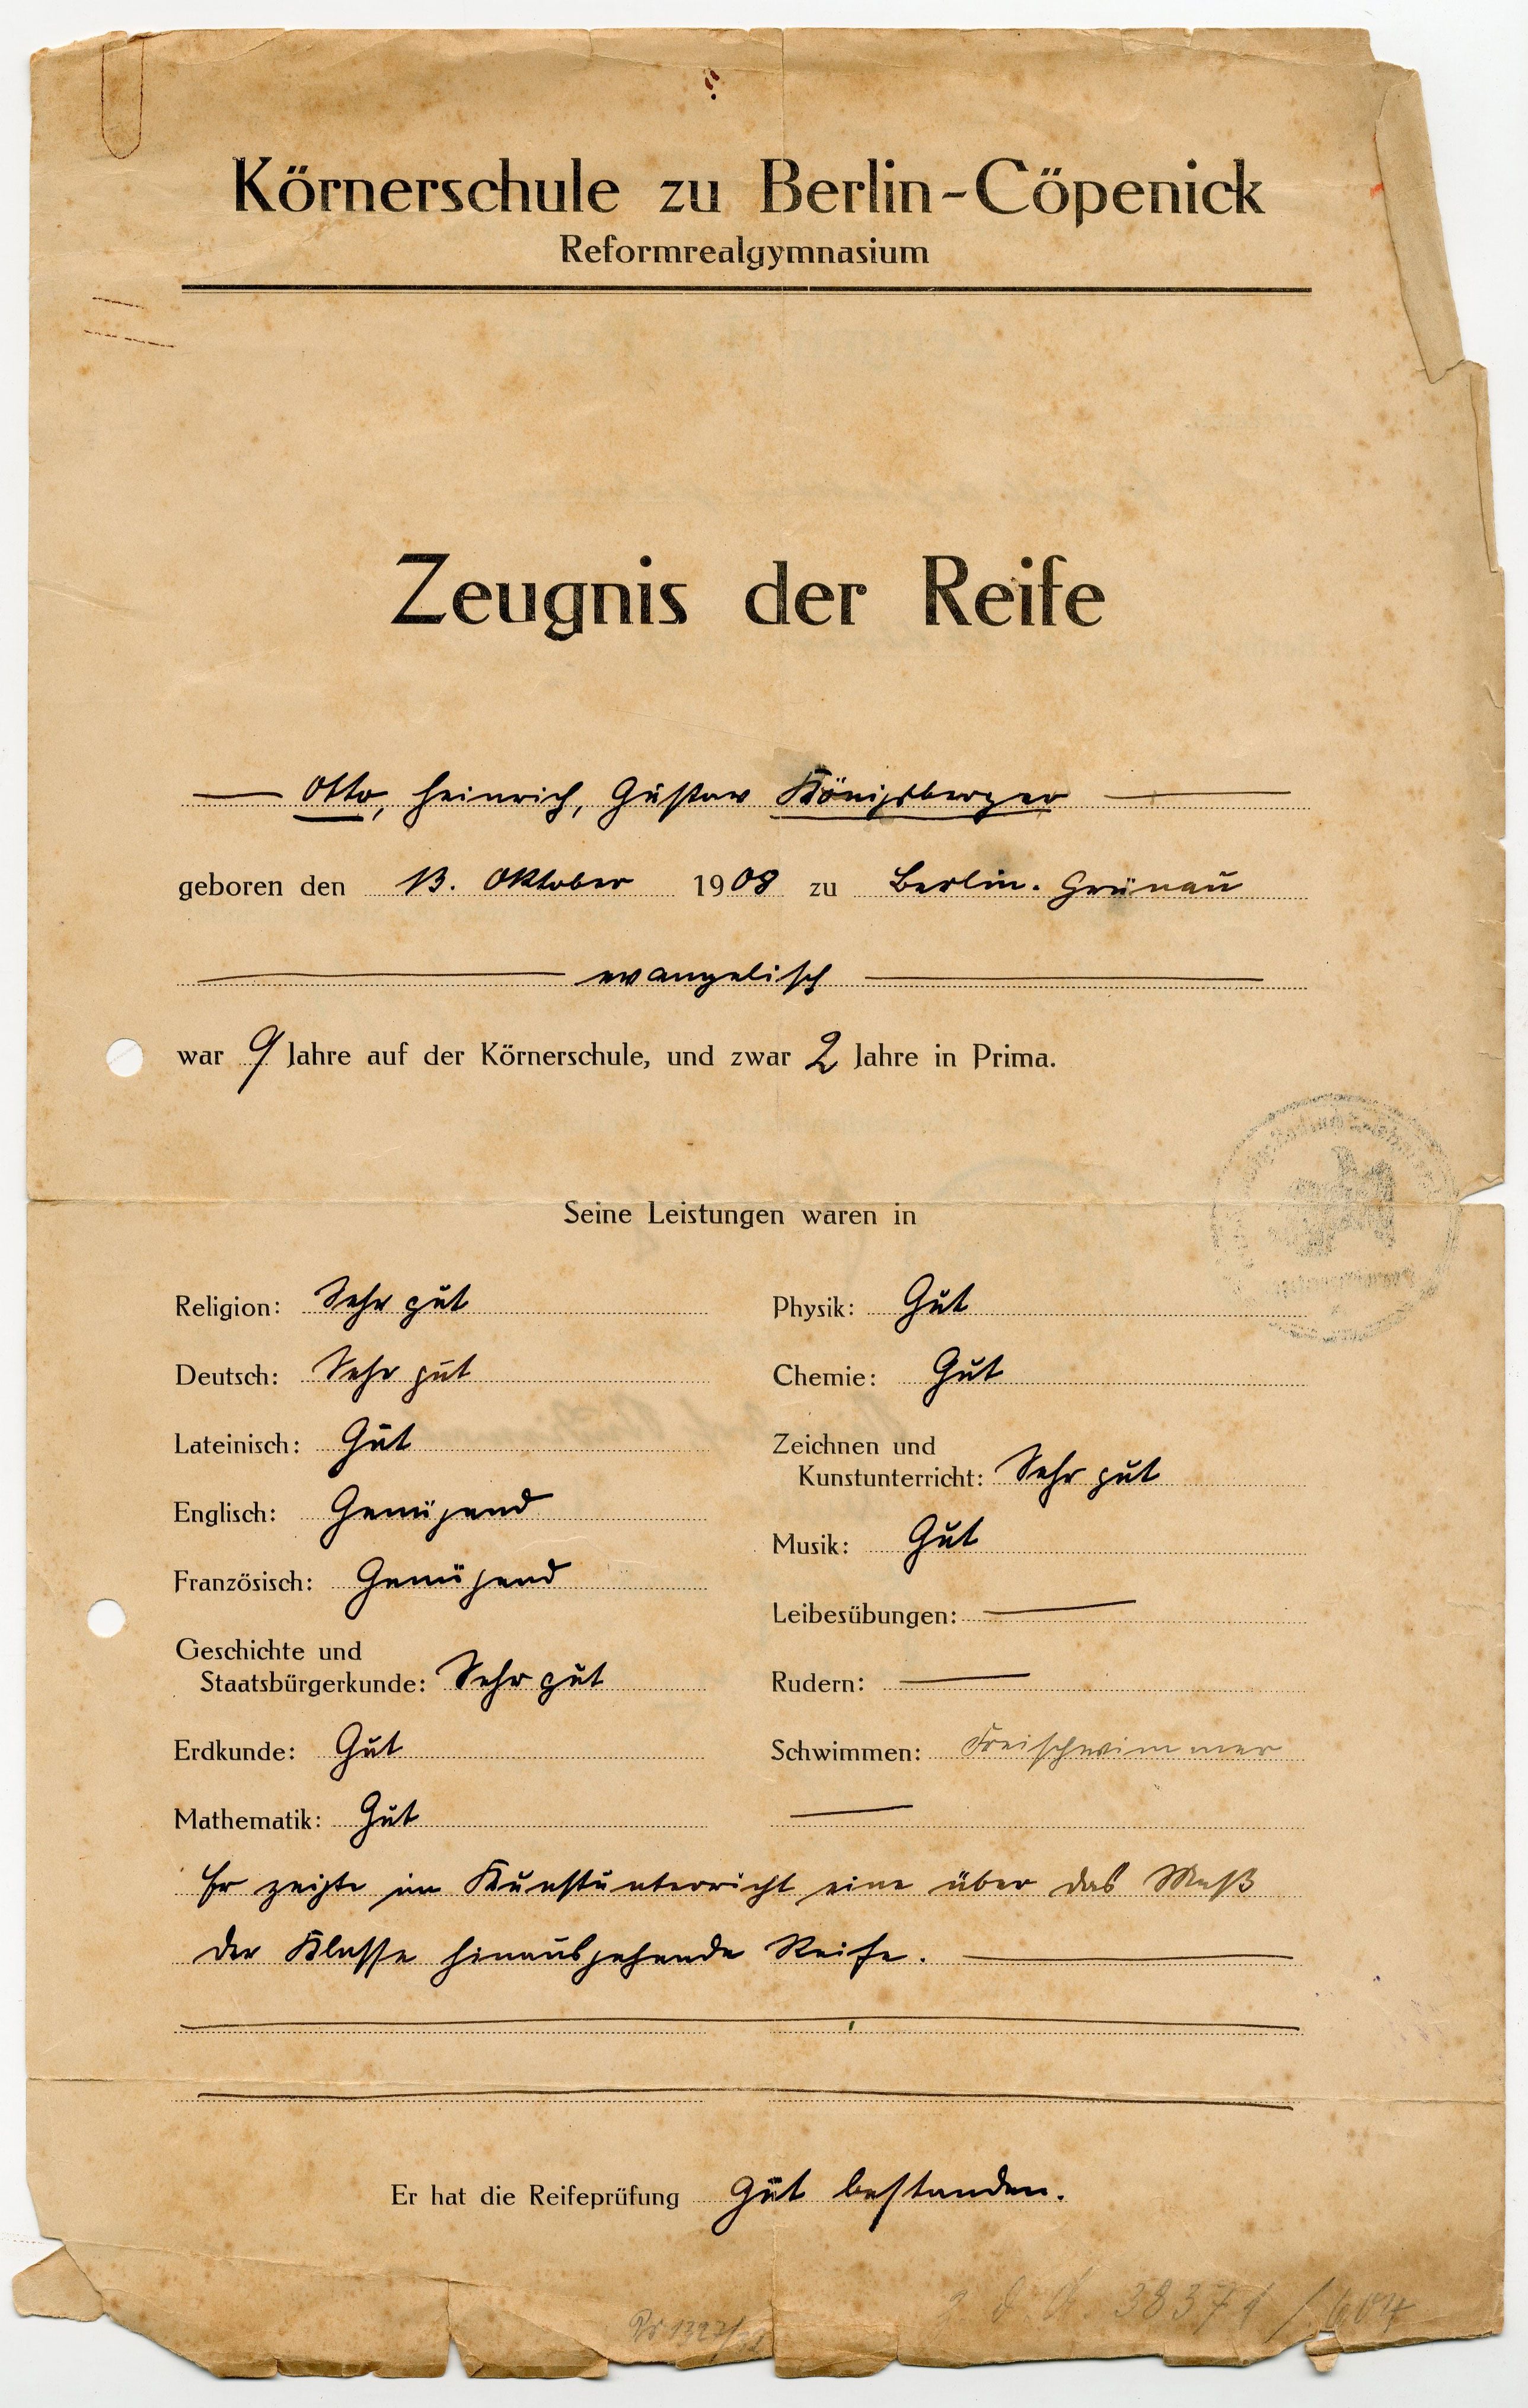 Körnerschule zu Berlin-Cöpenick
Reformrealgymnasium
Zeugnis der Reife
Otto, Heinrich, Gustav Königsberger
geboren den 13. Oktober 1908 zu Berlin-Grünau
evangelisch
war 9 Jahre auf der Körnerschule, und zwar 2 Jahre in Prima.
Seine Leistungen waren in
Religion: Sehr gut
Deutsch: Sehr gut
Lateinisch: Gut
Englisch: Genügend
Französisch: Genügend
Geschichte und
Staatsbürgerkunde: Sehr gut
Erdkunde: Gut
Mathematik: Gut
Physik: Gut
Chemie: Gut
Zeichnen und
Kunstunterricht: Sehr gut
Musik: Gut
Leibesübungen:
Rudern:
Schwimmen: Freischwimmer
Er zeigte im Kunstunterricht eine über das Maß
der Klasse hinausgehende Reife.
Er hat die Reifeprüfung Gut bestanden.